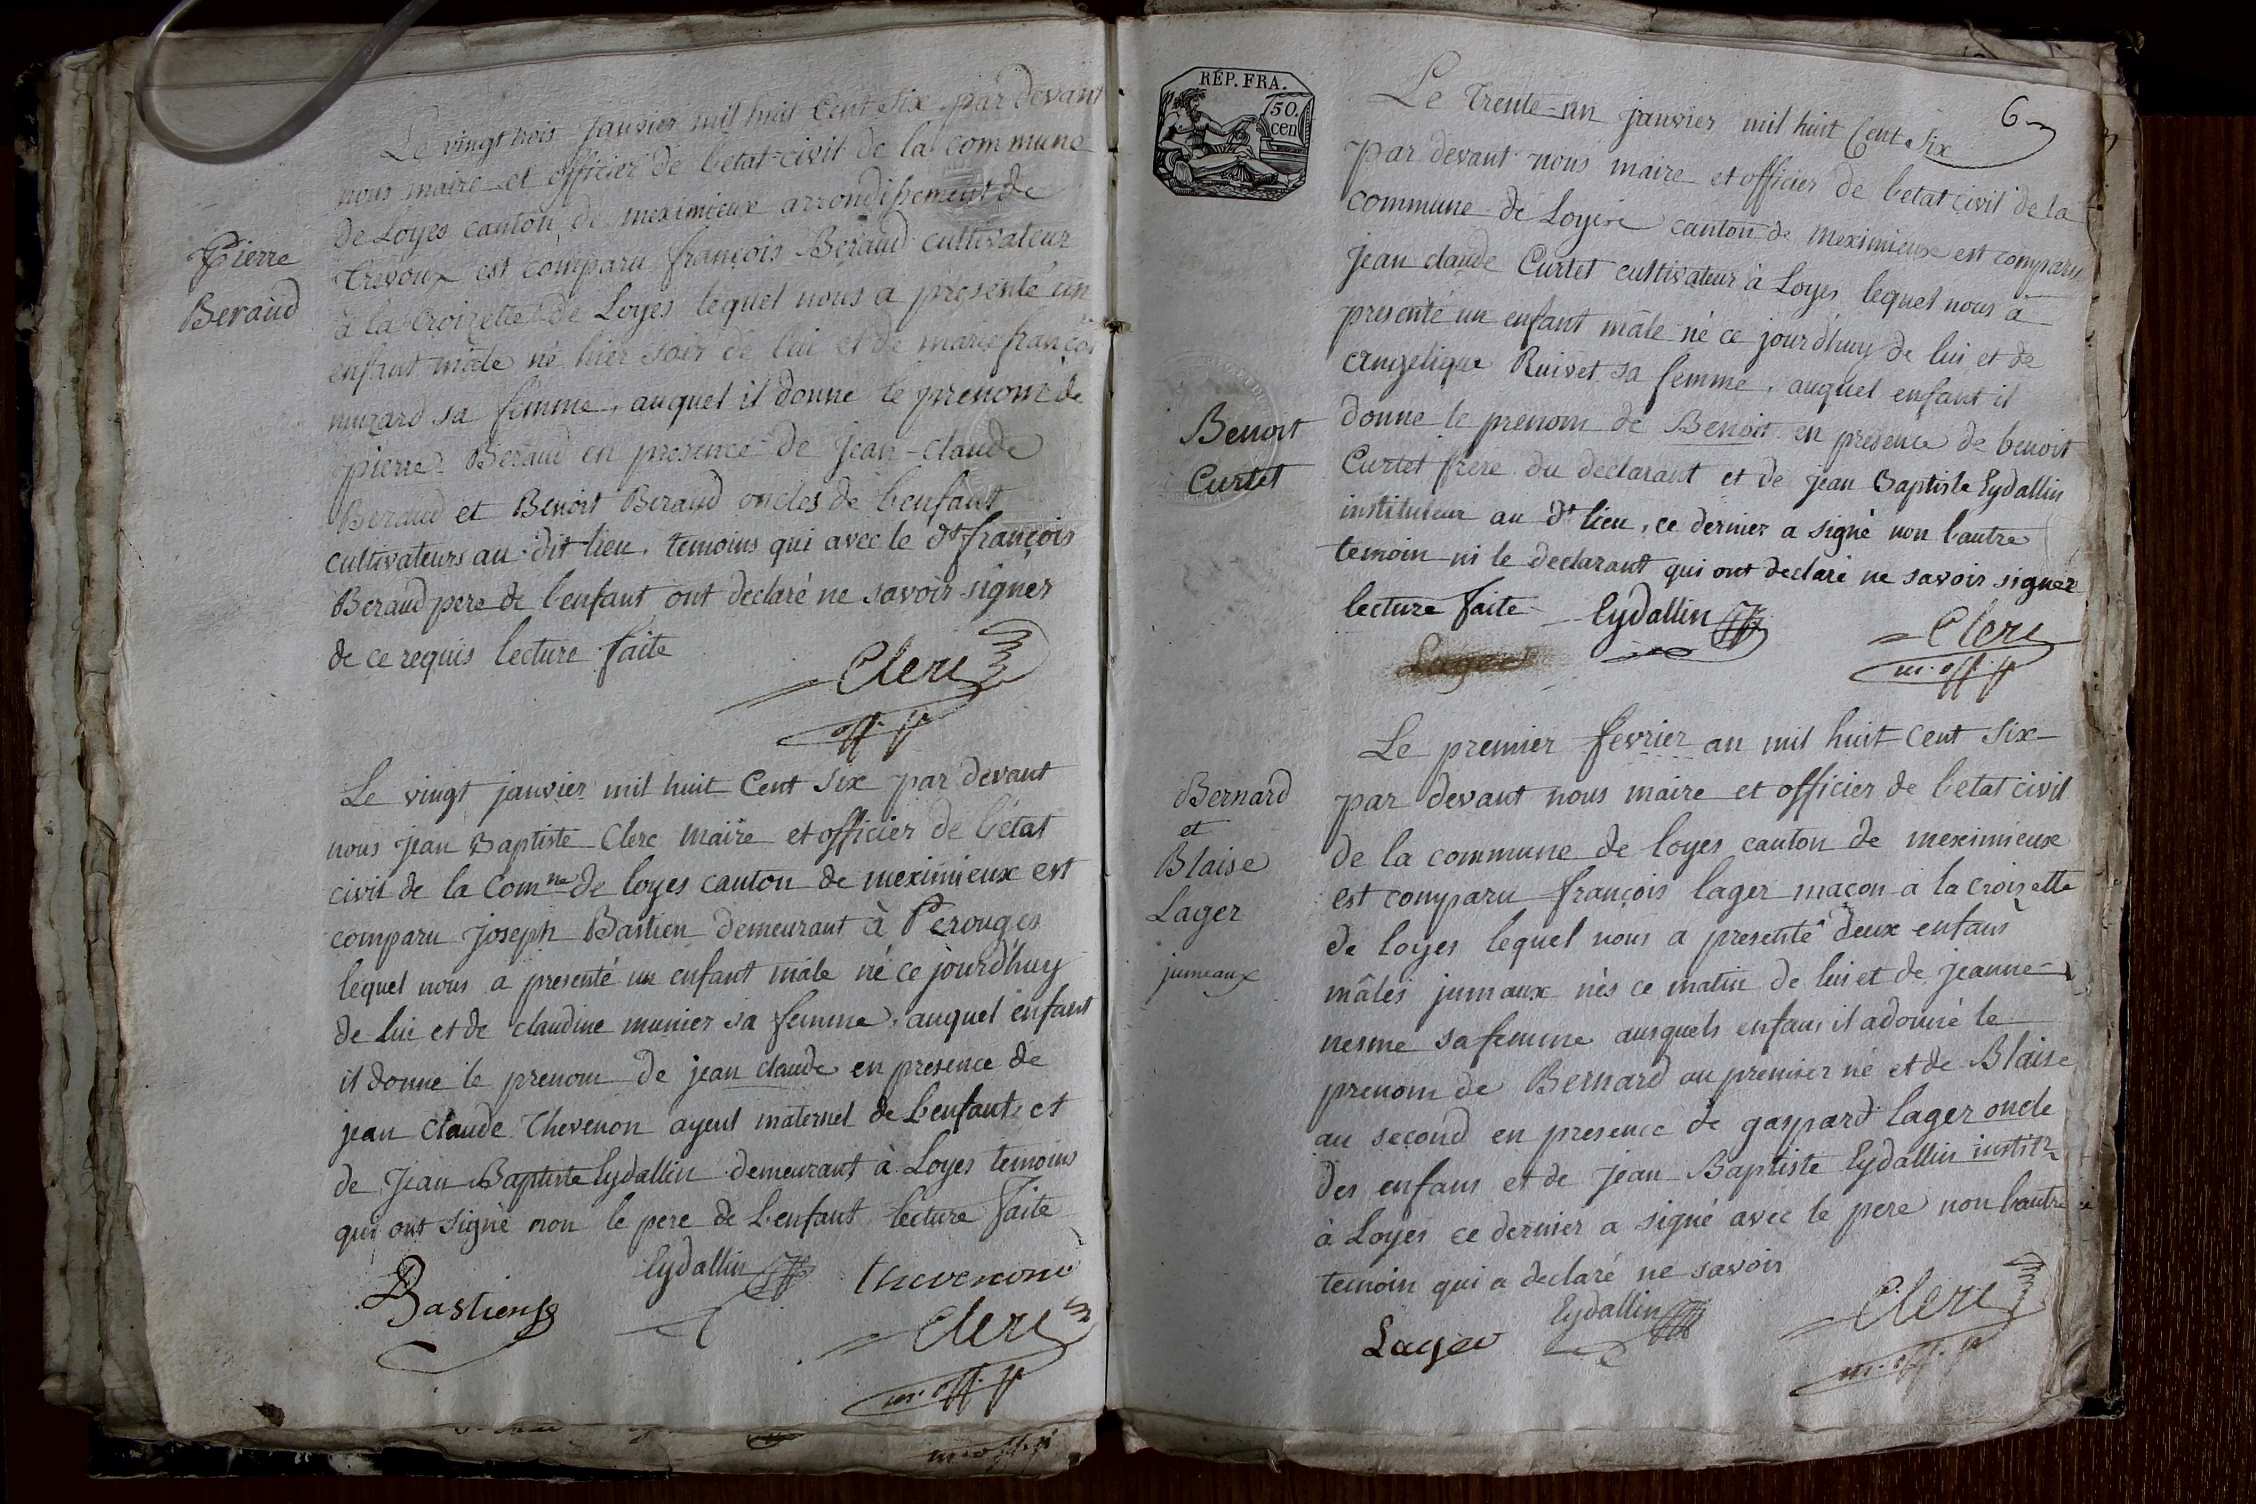 Le vingt trois janvier mil huit Cent Six par devant
nous maire et officier de l'etat-civil de la commune
de Loyes canton de meximieux arrondissement de
Trevoux est comparu françois Beraud cultivateur
à la Croizette de Loyes lequel nous a presenté un
enfant mâle né hier soir de lui et de marie françoi
sa femme, auquel il donne le prenom de
pierre Beraud en presence de Jean-Claude
Beraud et Benoit Beraud oncles de l'enfant
cultivateurs au dit lieu, temoins qui avec le dt françois
Beraud pere de l'enfant ont declaré ne savoir signer
de ce requis lecture faite
Pierre
Beraud
Clerc
off. p
Le vingt janvier mil huit Cent Six par devant
nous Jean Baptiste Clerc maire et officier de l'état
civil de la Comne de loyes canton de meximieux est
comparu Joseph Bastien demeurant à Perouges
lequel nous a presenté un enfant mâle né ce jourd'huy
de lui et de claudine munier sa femme, auquel enfant
il donne le prenom de jean claude en presence de
jean Claude Thevenon ayeul maternel de l'enfant et
de Jean Baptiste Eydallin demeurant à Loyes temoins
qui ont signé non le pere de l'enfant lecture faite
Bastien
Eydallin
thevenon
Clerc
m. off. p
RÉP. FRA.
50.
cen
6
Le Trente-un janvier mil huit Cent Six
par devant nous maire et officier de l'etat civil de la
commune de Loyes canton de meximieux est comparu
Jean claude Curtet cultivateur à Loyes lequel nous a
presenté un enfant mâle né ce jourd'huy de lui et de
angelique Ruivet sa femme, auquel enfant il
donne le prenom de Benoit en presence de benoit
Curtet frere du declarant et de jean Baptiste Eydallin
instituteur au dt lieu, ce dernier a signé non l'autre
temoin ni le declarant qui ont declaré ne savoir signer
lecture faite
Benoit
Curtet
Eydallin
Clerc
m. off. p
Le premier fevrier an mil huit cent six
par devant nous maire et officier de l'etat civil
de la commune de loyes canton de meximieux
est comparu françois lager maçon a la croizette
de loyes lequel nous a presenté deux enfans
mâles jumaux nés ce matin de lui et de jeanne
nesme sa femme ausquels enfans il a donné le
prenom de Bernard au premier né et de Blaise
au second en presence de gaspard lager oncle
des enfans et de jean Baptiste Eydallin institr
à Loyes ce dernier a signé avec le pere non l'autre
temoin qui a declaré ne savoir
Bernard
et
Blaise
Lager
jumeaux
Lager
Eydallin
Clerc
m. off. p